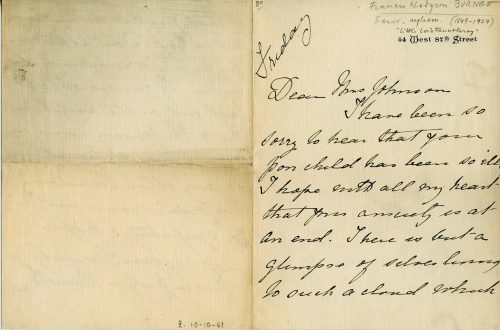 Frances Hodgson BURNETT
(1849-1924)
"Little Lord Fauntleroy"
44 West 87th Street
Friday
Dear Mrs Johnson
I have been so
sorry to hear that your
poor child has been so ill
I hope with all my heart
that your anxiety is at
an end. There is but a
glimpse of silver lining
to such a cloud which
2. 10-10-61